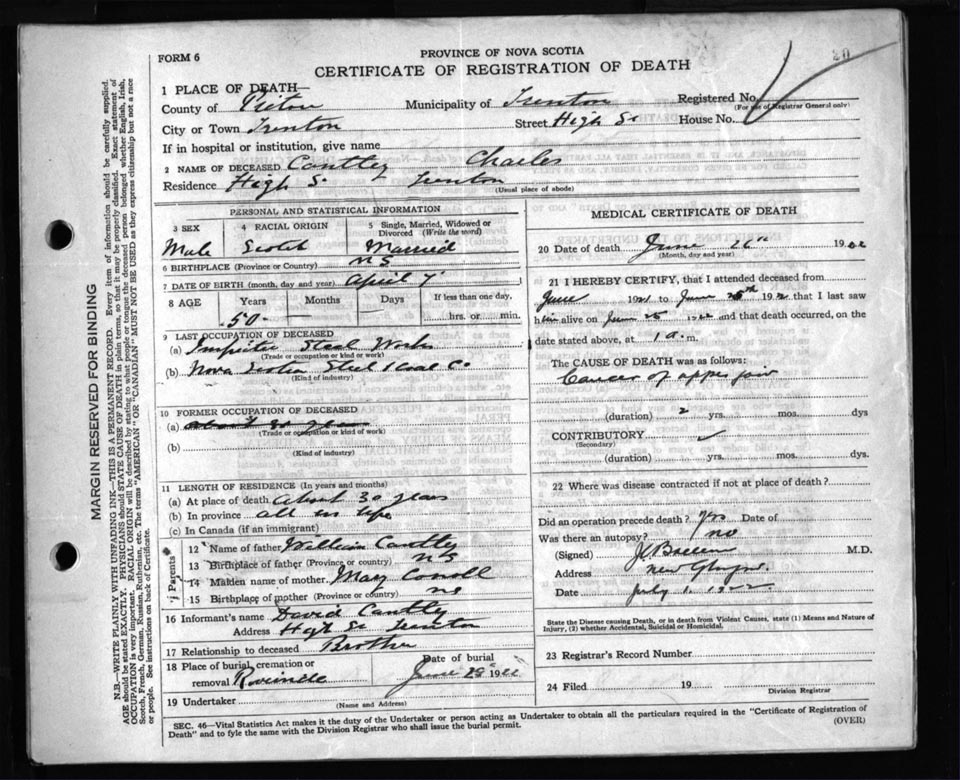 FORM 6
PROVINCE OF NOVA SCOTIA
CERTIFICATE OF REGISTRATION OF DEATH
20
1 PLACE OF DEATH—
County of Pictou Municipality of Trenton Registered No.
(For use of Registrar General only)
City or Town Trenton Street High St House No.
If in hospital or institution, give name
2 NAME OF DECEASED Cantley Charles
Residence High S. Trenton
(Usual place of abode)
PERSONAL AND STATISTICAL INFORMATION
3 SEX 4 RACIAL ORIGIN 5 Single, Married, Widowed or Divorced (Write the word)
Male Scotch Married
6 BIRTHPLACE (Province or Country) N S
7 DATE OF BIRTH (month, day and year) April 7
8 AGE Years Months Days If less than one day,
50 hrs. or min.
9 LAST OCCUPATION OF DECEASED
(a) Steel Works
(Trade or occupation or kind of work)
(b) Nova Scotia Steel & Coal Co
(Kind of industry)
10 FORMER OCCUPATION OF DECEASED
(a) About 30 years
(Trade or occupation or kind of work)
(b)
(Kind of industry)
11 LENGTH OF RESIDENCE (In years and months)
(a) At place of death About 30 years
(b) In province all his life
(c) In Canada (if an immigrant)
Parents
12 Name of father William Cantley
13 Birthplace of father (Province or country) N S
14 Maiden name of mother Mary
15 Birthplace of mother (Province or country) NS
16 Informant's name David Cantley
Address High St Trenton
17 Relationship to deceased Brother
18 Place of burial, cremation or Date of burial
removal June 28 1922
19 Undertaker
(Name and Address)
MEDICAL CERTIFICATE OF DEATH
20 Date of death June 26th 1922
(Month, day and year)
21 I HEREBY CERTIFY, that I attended deceased from
June 1921 to June 192 that I last saw
him alive on June 25 1922 and that death occurred, on
date stated above, at 1 a.m.
The CAUSE OF DEATH was as follows:
Cancer of upper jaw
(duration) 2 yrs. mos. dys
CONTRIBUTORY
(Secondary)
(duration) yrs. mos. dys.
22 Where was disease contracted if not at place of death?
Did an operation precede death? Yes Date of
Was there an autopsy? no
(Signed) M.D.
Address New Glasgow.
Date July 1. 1922
State the Disease causing Death, or in death from Violent Causes, state (1) Means and Nature of
Injury, (2) whether Accidental, Suicidal or Homicidal.
23 Registrar's Record Number
24 Filed 19
Division Registrar
SEC. 46—Vital Statistics Act makes it the duty of the Undertaker or person acting as Undertaker to obtain all the particulars required in the "Certificate of Registration of
Death" and to fyle the same with the Division Registrar who shall issue the burial permit.
(OVER)
MARGIN RESERVED FOR BINDING
N.B.—WRITE PLAINLY WITH UNFADING INK—THIS IS A PERMANENT RECORD. Every item of information should be carefully supplied.
AGE should be stated EXACTLY. PHYSICIANS should STATE CAUSE OF DEATH in plain terms, so that it may be properly classified. Exact statement of
OCCUPATION is very important. RACIAL ORIGIN will be described by stating to what people or tongue the deceased person belonged whether English, Irish,
Scotch, French, German, Russian, Ruthenian, etc. The terms "AMERICAN" or "CANADIAN" MUST NOT BE USED as they express citizenship but not a race
or people. See instructions on back of Certificate.